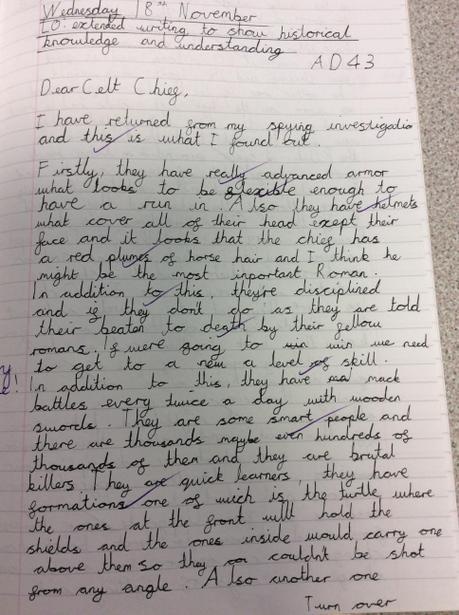 Wednesday 18th November
LO: extended writing to show historical
knowledge and understanding
AD43
Dear Celt Chieg,
I have returned from my spying investigatio
and this is what I found out.
Firstly, they have really advanced armor
what looks to be flexible enough to
have a run in. Also they have helmets
what cover all of their head exept their
face and it looks that the chieg has
a red plumes of horse hair and I think he
might be the most inportant Roman.
In addition to this, they're disciplined
and if they don't do as they are told
their beaten to death by their fellow
romans. If were going to win we need
to get to a new a level of skill.
y!
e!
In addition to this, they have mack
battles every twice a day with wooden
swords. They are some smart people and
there are thousands maybe even hundreds of
thousands of them and they are brutal
killers. They are quick learners, they have
formations one of wich is the turtle, where
the ones at the front will hold the
shields and the ones inside would carry one
above them so they couldn't be shot
from any angle. Also another one
Turn over